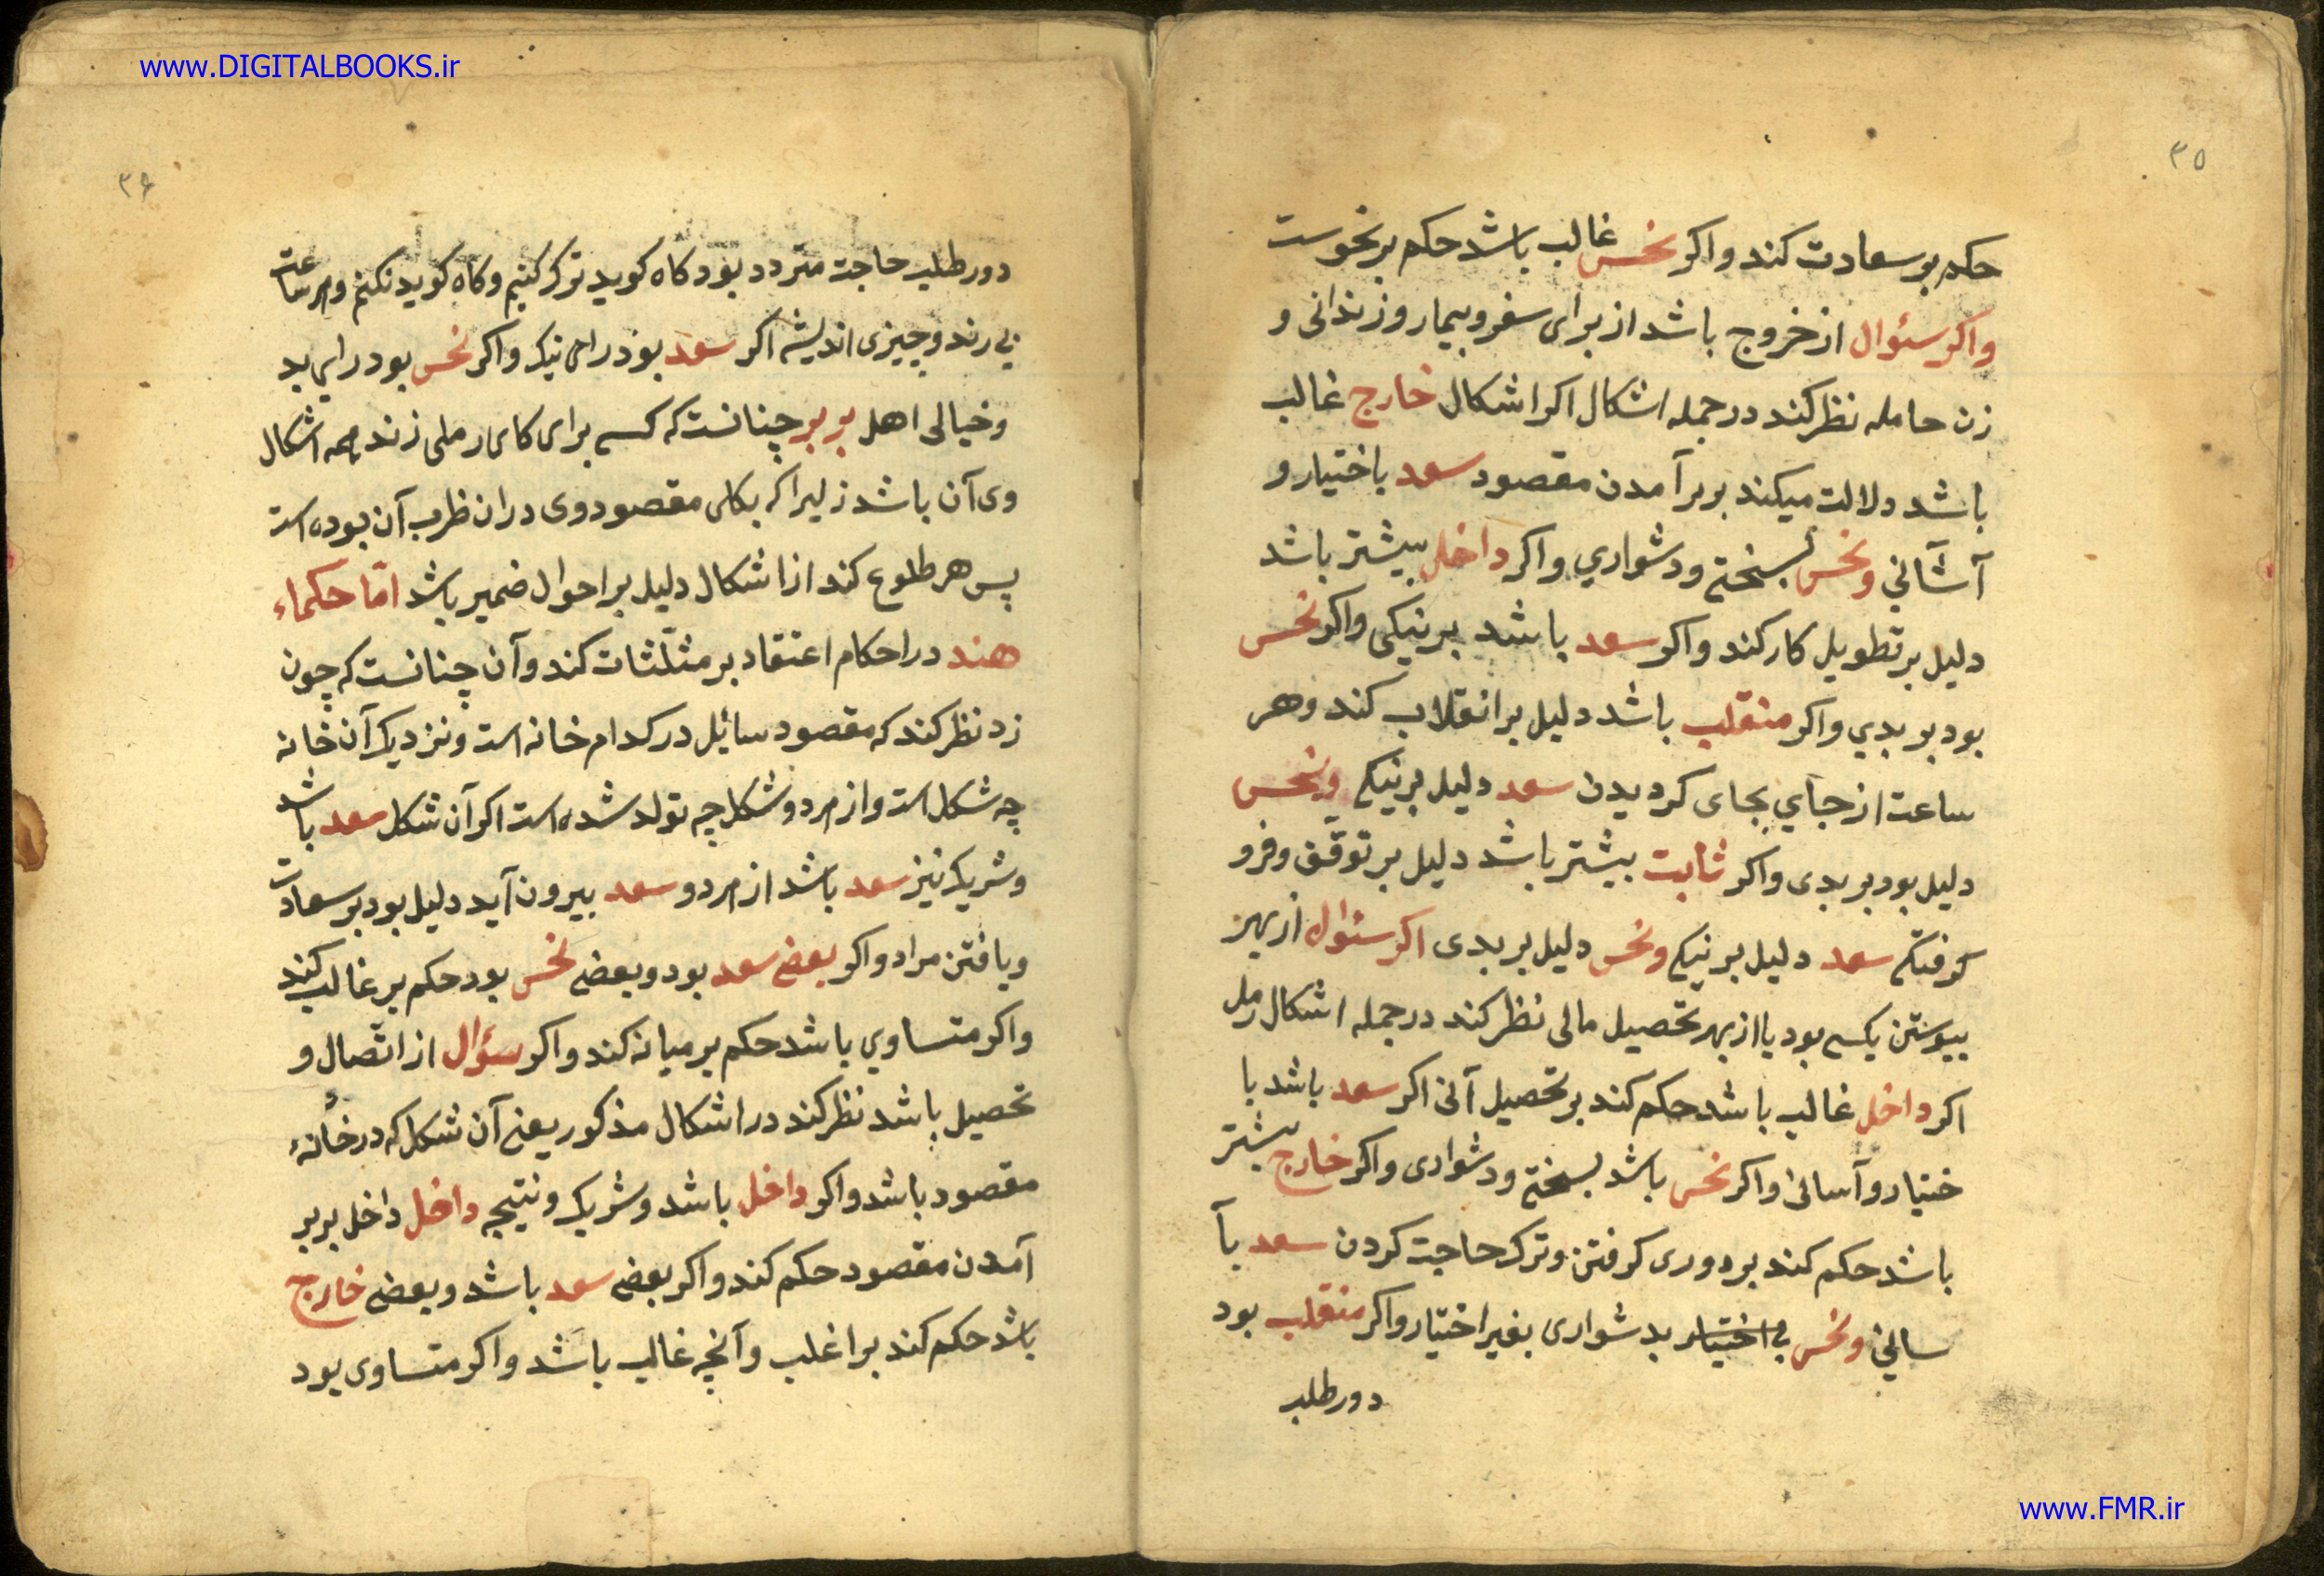 www.DIGITALBOOKS.ir
۳۵
حکم بر سعادت کند واکر نحس غالب باشد حکم بر نحوست
واکر سئوال از خروج باشد از برای سفر و بیمار و زندانی و
زن حامله نظر کند در جمله اشکال اکر اشکال خارج غالب
باشد دلالت میکند بر برآمدن مقصود سعد باختیار و
آسانی ونحس بسختی ودشواري واکر داخل بیشتر باشد
دلیل بر تطویل کار کند واکر سعد باشد بر نیکی واکر نحس
بود بر بدي واکر منقلب باشد دلیل بر انقلاب کند وهر
ساعت از جاي بجای کردیدن سعد دلیل بر نیکی ونحس
دلیل بود بر بدی واکر ثابت بیشتر باشد دلیل بر توقف وفرو
کرفتکی سعد دلیل بر نیکی ونحس دلیل بر بدی اکر سئوال از بهر
پیوستن بکسی بود یا از بهر تحصیل مالی نظر کند در جمله اشکال رمل
اکر داخل غالب باشد حکم کند بر تحصیل آن اکر سعد باشد با
ختیار وآسانی واکر نحس باشد بسختی ودشواری واکر خارج بیشتر
باشد حکم کند بر دوری کرفتن وترک حاجت کردن سعد بآ
سانی ونحس بی اختیار بدشواری بغیر اختیار واکر منقلب بود
دور طلب
۳۶
دور طلب حاجت متردد بود کاه کوید ترک کنیم وکاه کوید نکنم وهر ساعت
وچیزی اندیشه اکر سعد بود رای نیک واکر نحس بود راي بد
وخیالی اهل بربر چنانست که کسی برای کاری رملی زند همه اشکال
وی آن باشد زیرا که بکلی مقصود وی در ان ظرب آن بوده است
پس هر طلوع کند از اشکال دلیل بر احوال ضمیر باشد امّا حکماء
هند در احکام اعتقاد بر مثلّثات کند وآن چنانست که چون
زد نظر کند که مقصود سائل در کدام خانه است ونزدیک آن خانه
چه شکل است واز هر دو شکل چه تولد شده است اکر آن شکل سعد باشد
وشریک نیز سعد باشد از هر دو سعد بیرون آید دلیل بود بر سعادت
ویافتن مراد واکر بعضی سعد بود وبعضی نحس بود حکم بر غالب کند
واکر متساوي باشد حکم بر میانه کند واکر سؤال از اتّصال و
تحصیل باشد نظر کند در اشکال مذکور یعنی آن شکل که در خانهٔ
مقصود باشد واکر داخل باشد وشریک ونتیجه داخل داخل بر بر
آمدن مقصود حکم کند واکر بعضی سعد باشد وبعضی خارج
باشد حکم کند بر اغلب وآنچه غالب باشد واکر متساوی بود
www.FMR.ir